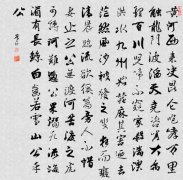 黄河西来决昆仑咆哮万里
触龙门波滔天尧咨嗟大禹
理百川儿啼不窥家杀湍湮
洪水九州始蚕麻其害乃去
茫然风沙被发之叟狂而痴
清晨临流欲奚为旁人不惜
妻止之公无渡河苦渡之虎
可搏河难凭公果溺死流海
湄有长鲸白齿若雪山公乎
公